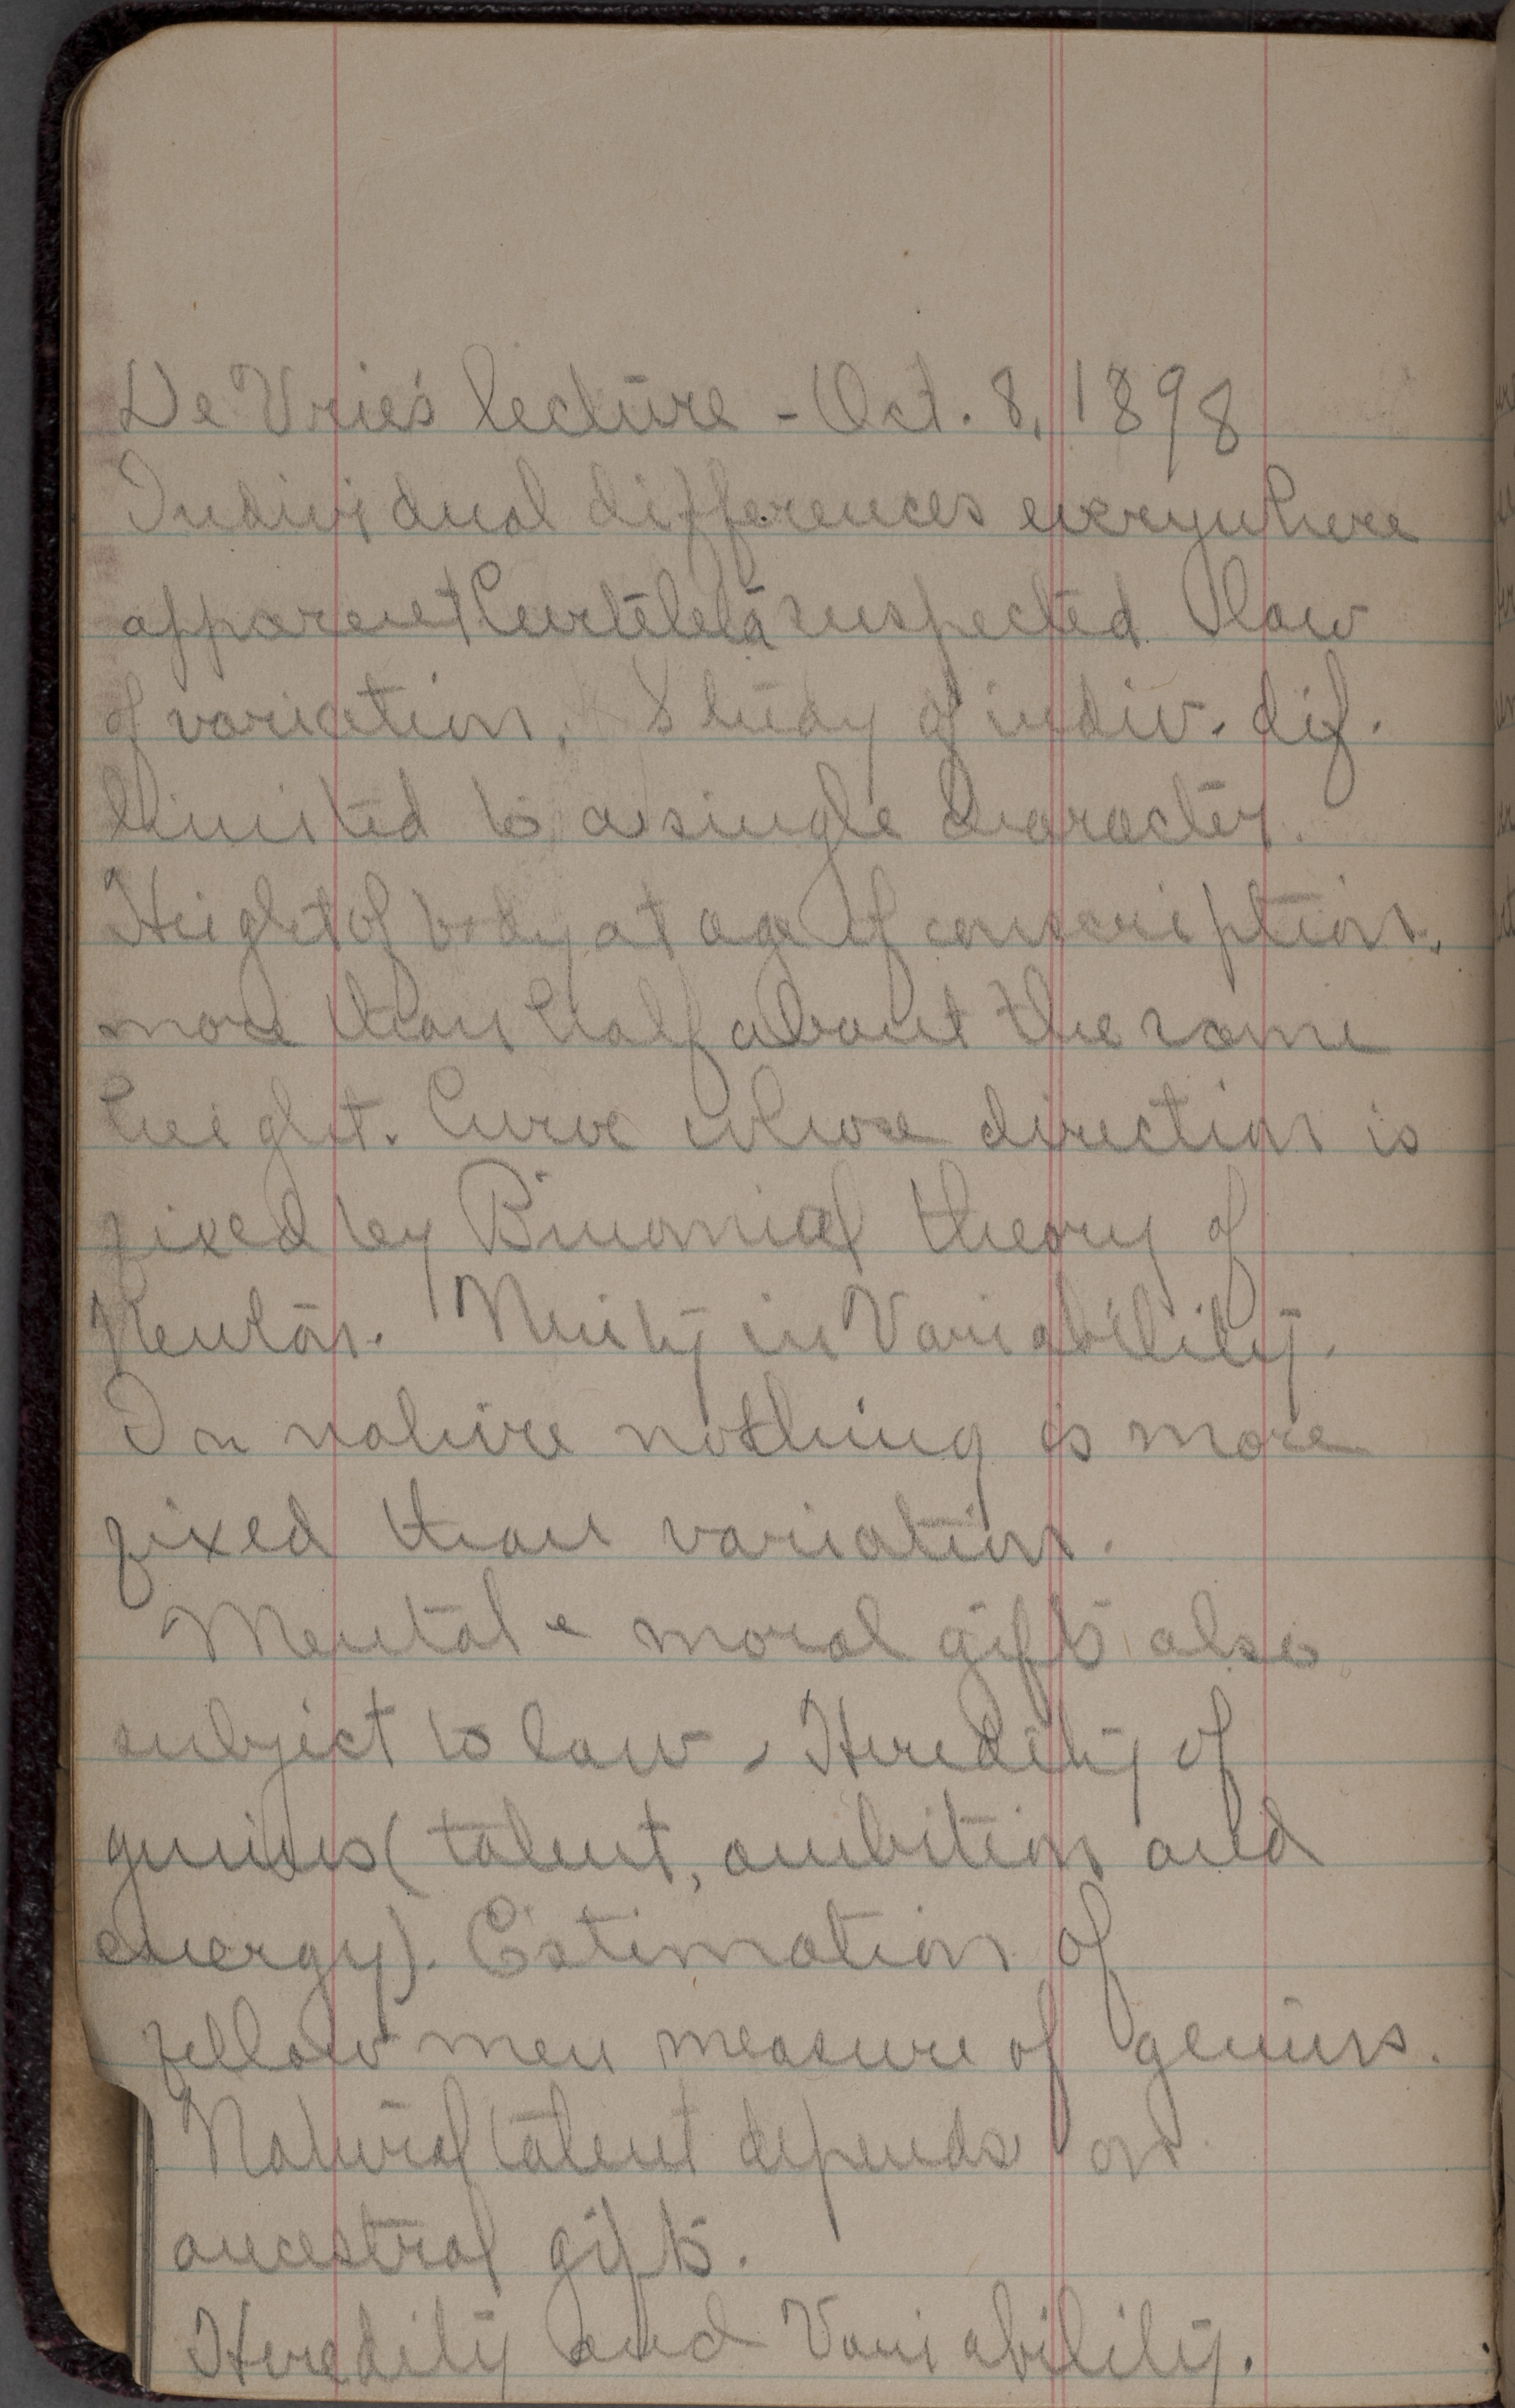 De Vrie's lecture - Oct. 8, 1898
Individual differences everywhere
apparent suspected law
of variation. Study of indiv. dif.
limited to a single character.
Height of body at age of conscription.
more than half about the same
height. Curve whose direction is
fixed by Binomial theory of
Newton. Unity in Variability.
In nature nothing is more
fixed than variation.
Mental & moral gifts also
subject to law. Heredity of
genius (talent, ambition and
energy). Estimation of
fellow men measure of genius.
Natural talent depends on
ancestral gifts.
Heredity and Variability.